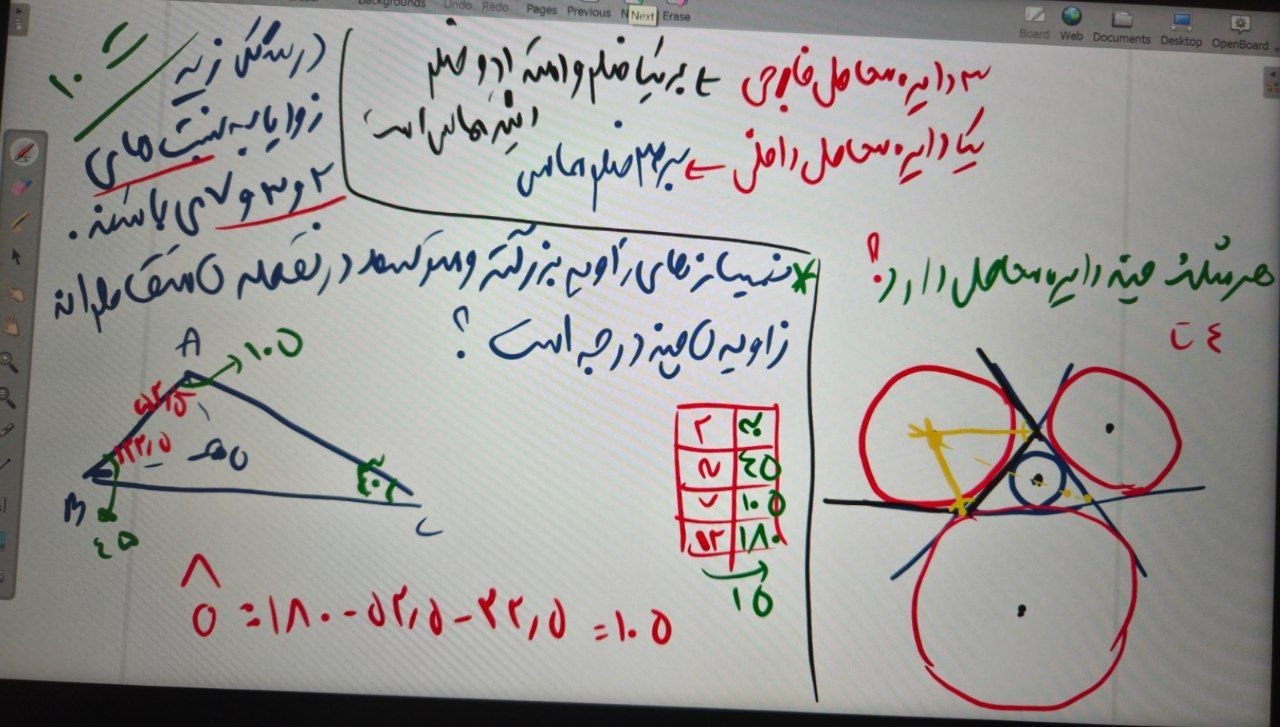 Backgrounds Undo Redo Pages Previous Next Erase
Board Web Documents Desktop OpenBoard
۳ دایره محاطی خارجی ← بر یک ضلع و امتداد دو ضلع
دیگر مماس است
یک دایره محاطی داخلی ← بر ۳ ضلع مماس
هر مثلث چند دایره محاطی دارد؟
۴ تا
۱۰
در شکل زیر
زوایا به نسبت های
۲ و ۳ و ۷ می باشند.
* نیمساز های زاویه بزرگتر و متوسط در نقطه O متقاطع اند
زاویه O چند درجه است؟
A
۱۰۵
۵۲٫۵
۲۲٫۵
O
B
۴۵
۳۰
C
۲ ۳۰
۳ ۴۵
۷ ۱۰۵
۱۲ ۱۸۰
۱۵
O = ۱۸۰ - ۵۲٫۵ - ۲۲٫۵ = ۱۰۵